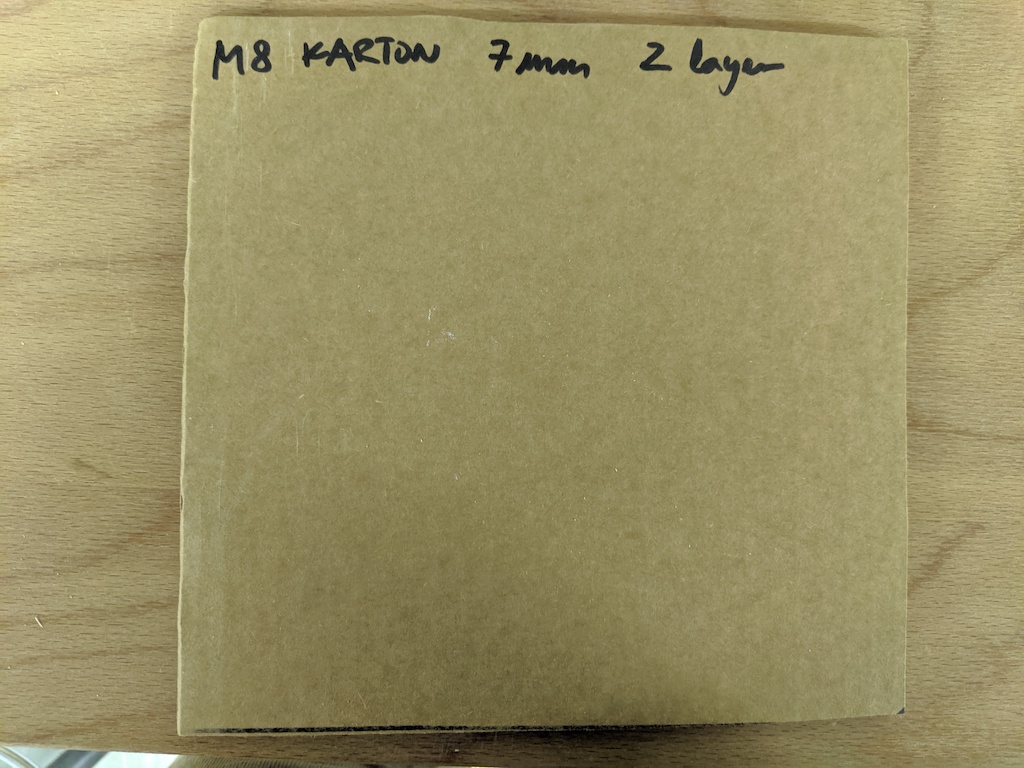 M8 KARTON 7mm 2 layer